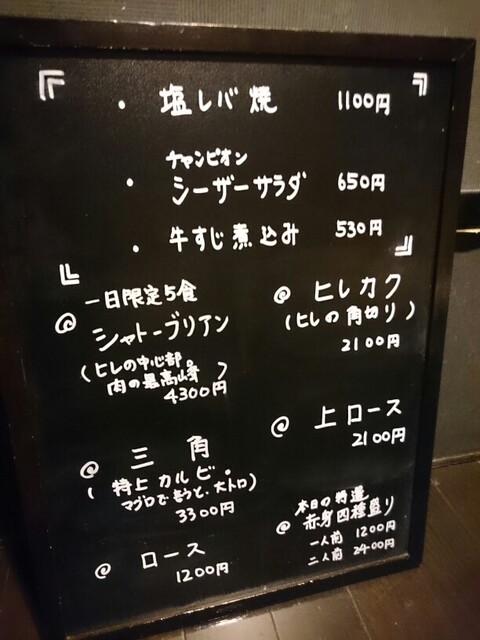 ・塩レバ焼 1100円
チャンピオン
・シーザーサラダ 650円
・牛すじ煮込み 530円
一日限定5食
@ シャトーブリアン
(ヒレの中心部。
肉の最高峰)
4300円
@ 三角
(特上カルビ・
マグロで言うと、大トロ)
3300円
@ ロース
1200円
@ ヒレカク
(ヒレの角切り)
2100円
@ 上ロース
2100円
本日の特選
@ 赤身四種盛り
一人前 1200円
二人前 2400円